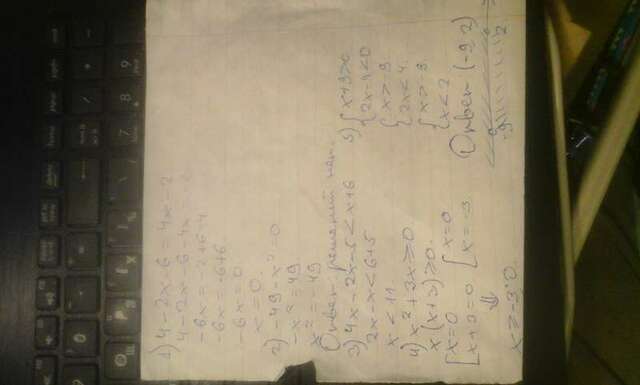 1) 4-2x-6=4x-2
4-2x-6-4x=-2
-6x=-2+6-4
-6x=-6+6
-6x=0
x=0
2) -49-x²=0
-x²=49
x²=-49
Ответ: решений нет.
3) 4x-2x-5<x+6
2x-x<6+5
x<11
4) x²+3x≥0
x(x+3)≥0
[x=0 [x=0
[x+3=0 [x=-3
⇓
x≥-3;0.
5) {x+9>0
{2x-4<0
{x>-9
{2x<4.
{x>-9
{x<2
Ответ (-9 2)
-9 2